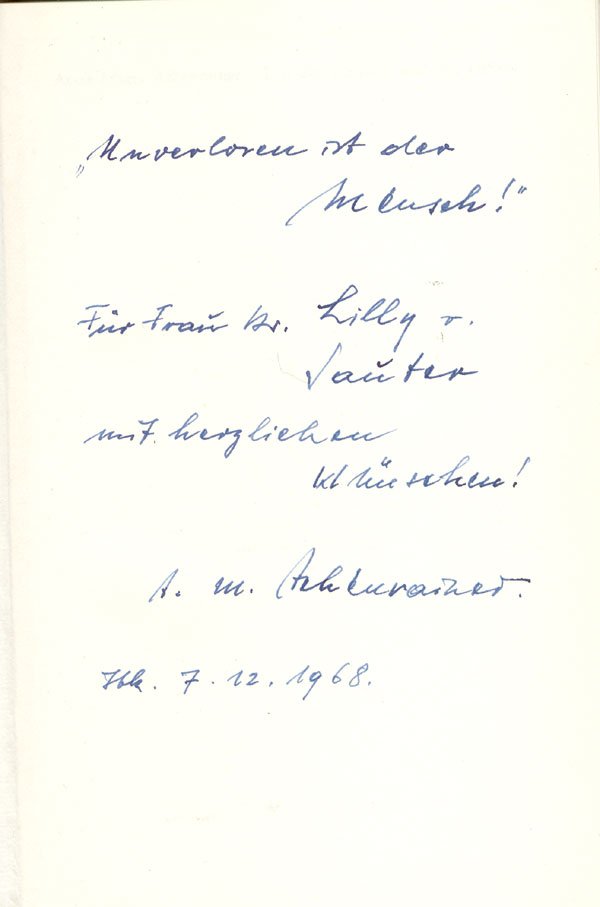 „Unverloren ist der
Mensch!"
Für Frau Dr. Lilly v.
Sauter
mit herzlichen
Wünschen!
A. M. Achenrainer.
Ibk. 7.12.1968.